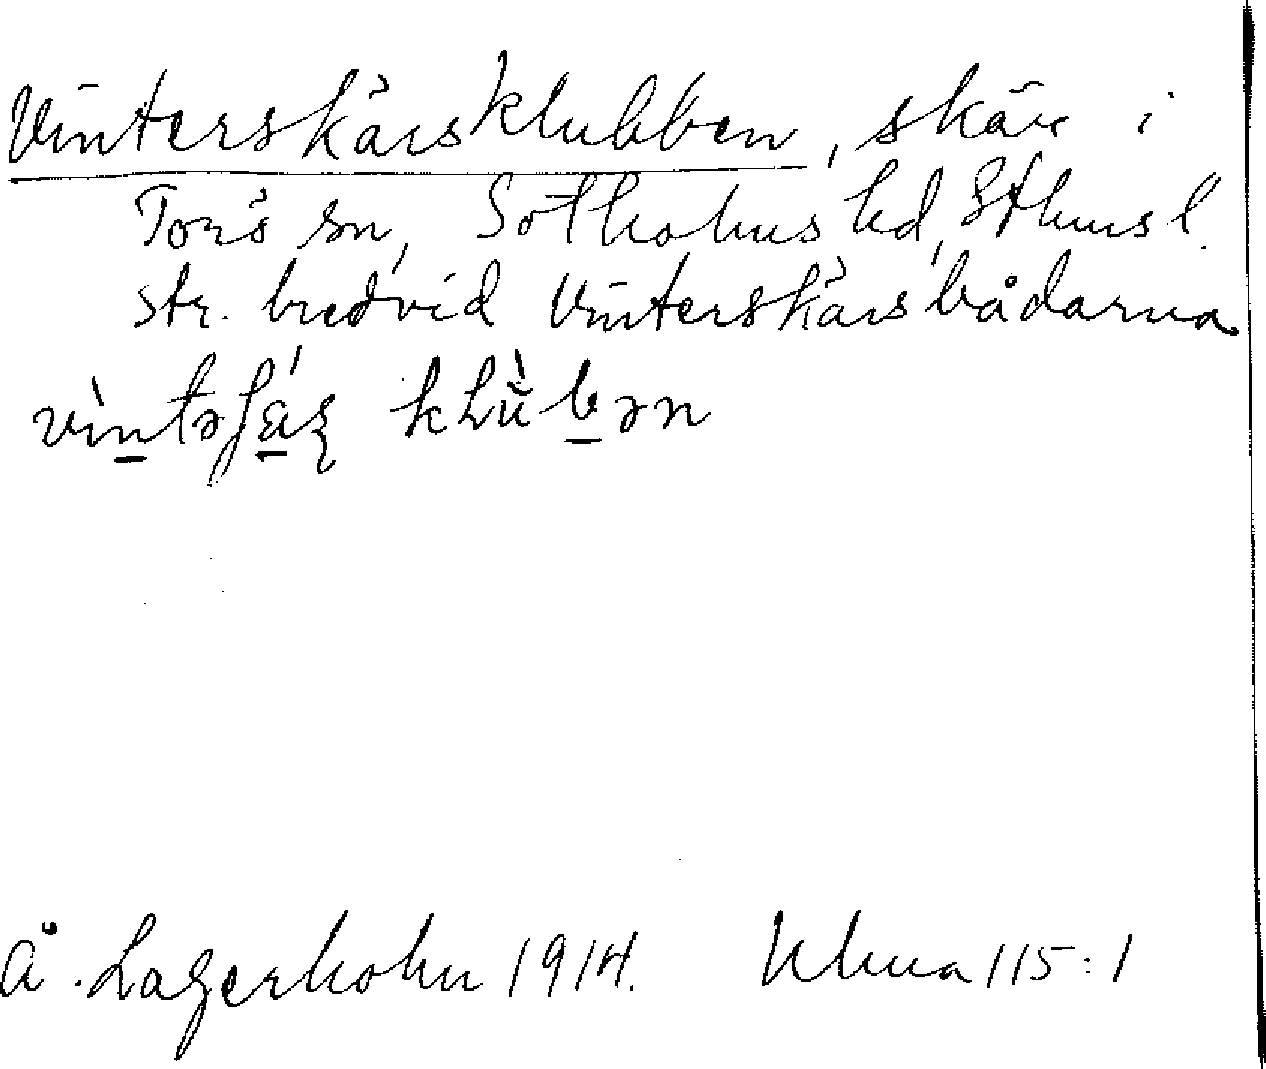 Vinterskärsklubben, skär i
Torö sn, Sotholms hd, Sthms l.
str. bredvid Vinterskärsbådarna
Å. Lagerholm 1914. Uhma 115:1